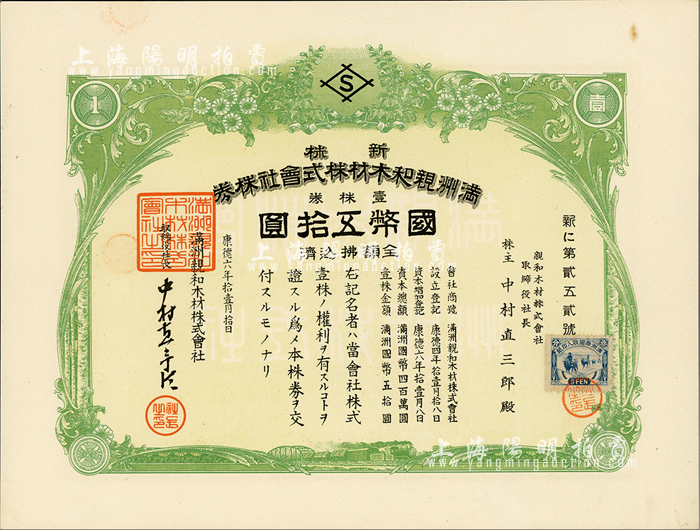 上海陽明拍賣
www.yangmingauction.com
S
1
壹
新株
滿洲親和木材株式會社株券
壹株券
國幣五拾圓
全額拂込濟
新に第貳五貳號
親和木材株式會社
取締役社長
株主 中村直三郎殿
會社商號 滿洲親和木材株式會社
設立登記 康德四年拾壹月拾八日
資本增加登記 康德六年拾壹月八日
資本總額 滿洲國幣四百萬圓
壹株金額 滿洲國幣五拾圓
記名者ハ當會社株式
壹株ノ權利ヲ有スルコトヲ
證スル爲メ本株券ヲ交
付スルモノナリ
康德六年拾壹月拾日
滿洲親和木材株式會社
取締役社長
中村直三郎
滿洲親和木材株式會社之印
社長之印
3 FEN
上海陽明拍賣
www.yangmingauction.com